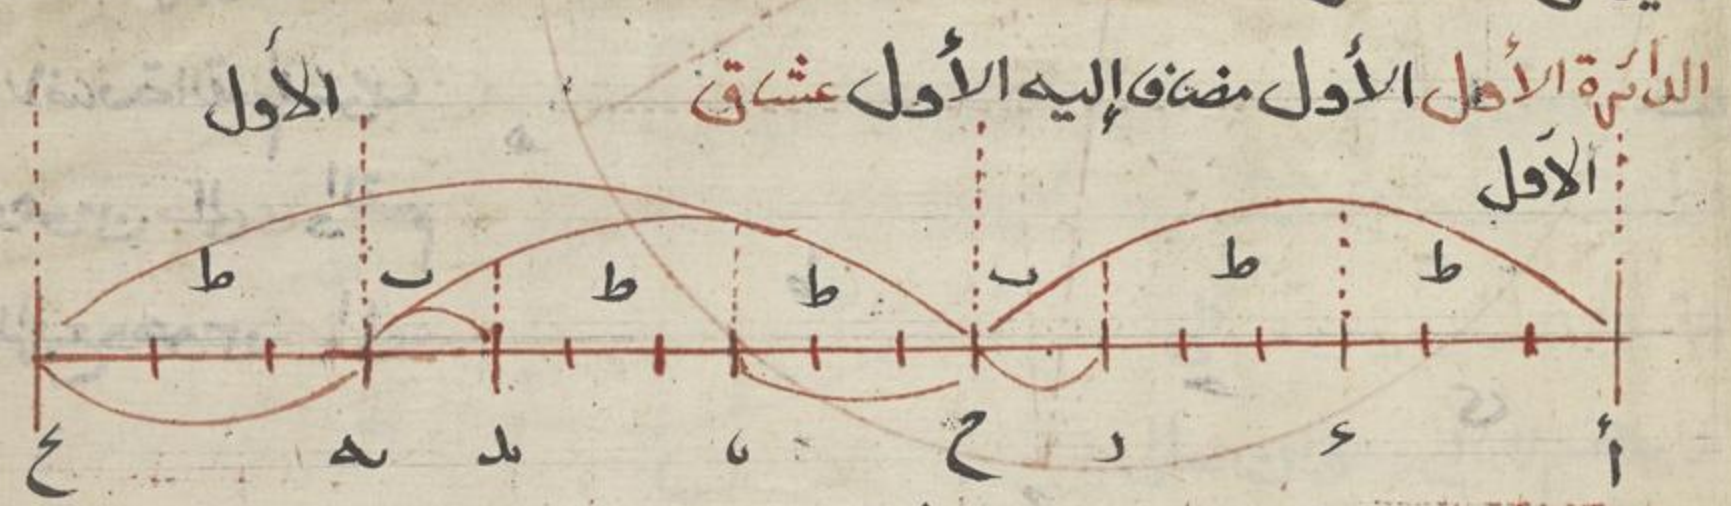 الدائرة الأول الأول مضاف إليه الأول عشاق
الأول
الأول
ط ط ب ط ط ب ط
أ د ح يد يه ع